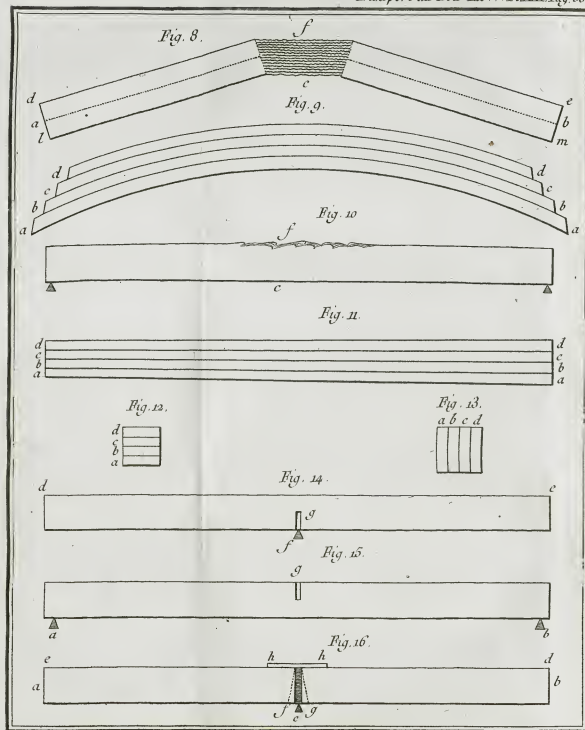 Fig. 8.
f
d
a
l
c
e
b
m
Fig. 9.
d
c
b
a
d
c
b
a
Fig. 10
f
c
Fig. 11.
d
c
b
a
d
c
b
a
Fig. 12.
d
c
b
a
Fig. 13.
a b c d
Fig. 14
d
e
g
f
Fig. 15.
g
a
b
Fig. 16.
e
h
h
d
a
b
f
e
g